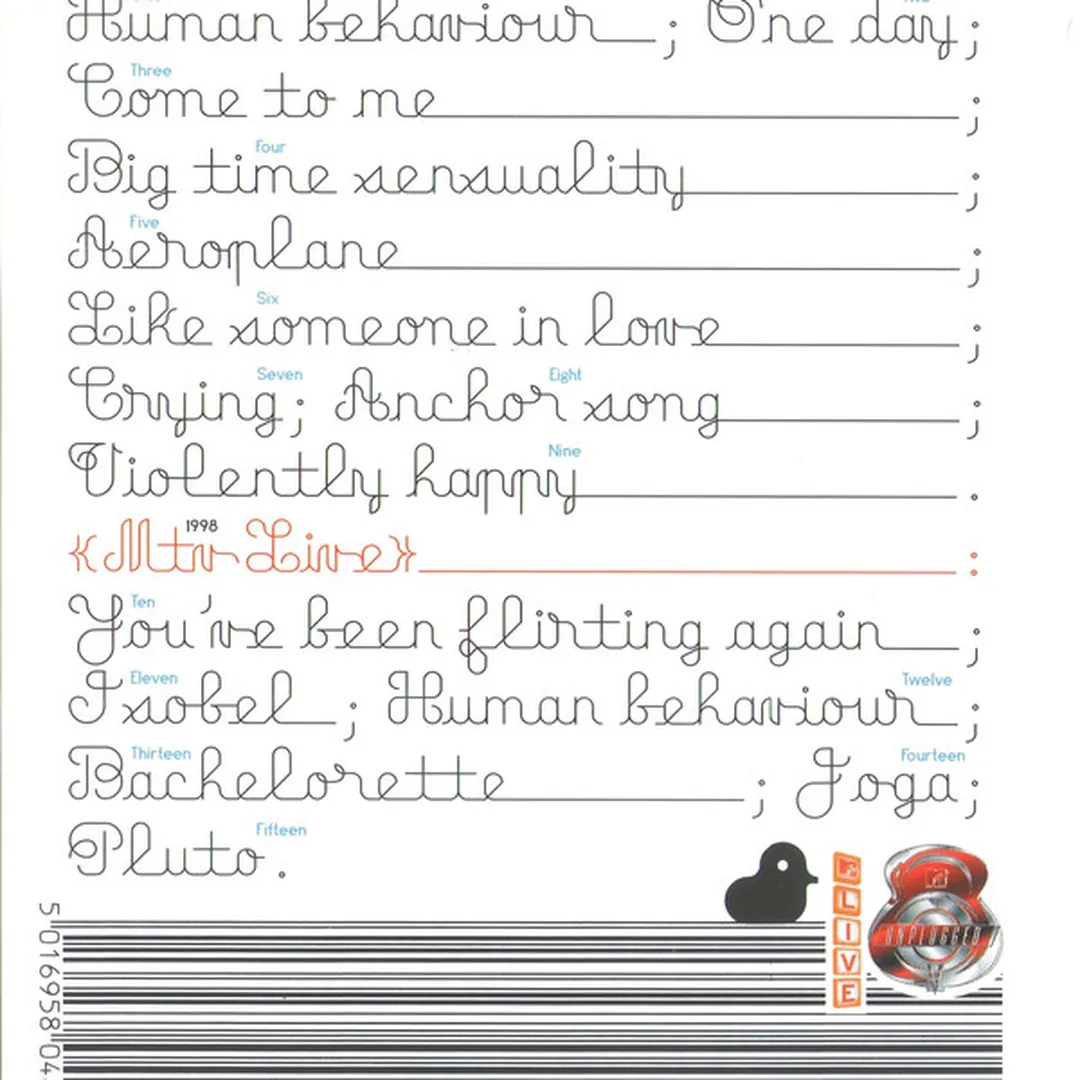 Human behaviour ; One day;
Three
Come to me ;
Four
Big time sensuality ;
Five
Aeroplane ;
Six
Like someone in love ;
Seven Eight
Crying; Anchor song ;
Nine
Violently happy .
1998
«Mtv Live» :
Ten
You've been flirting again ;
Eleven Twelve
Isobel ; Human behaviour ;
Thirteen Fourteen
Bachelorette ; Joga;
Fifteen
Pluto .
LIVE
UNPLUGGED
5 016958 04